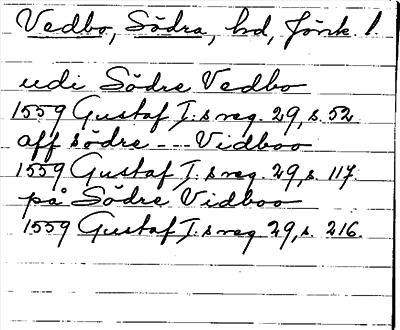 Vedbo, Södra, hd, Jönk. l.
udi Södre Vedbo
1559 Gustaf I:s reg. 29, s. 52.
aff södre --- Vidboo
1559 Gustaf I:s reg. 29, s. 117.
på Södre Vidboo
1559 Gustaf I:s reg 29, s. 216.